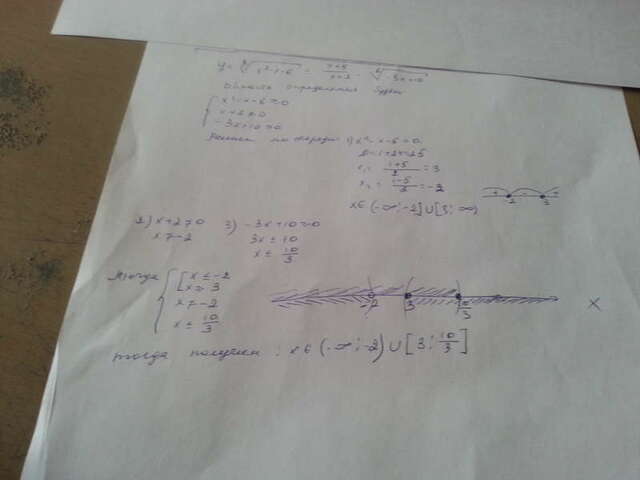 Область определения будет
x²-x-6≥0
x+2≠0
-3x+10≥0
Решаем по очереди: 1) x²-x-6=0
D=1+24=25
x₁= (1+5)/2 =3
x₂= (1-5)/2 =-2
+ -2 - 3 +
x∈(-∞;-2]∪[3;∞)
2) x+2≠0 3) -3x+10≥0
x≠-2 3x≤10
x≤ 10/3
Тогда x≤-2
x≥3
x≠-2
x≤ 10/3
-2 3 10/3 x
тогда получаем: x∈(-∞;-2)∪[3; 10/3]